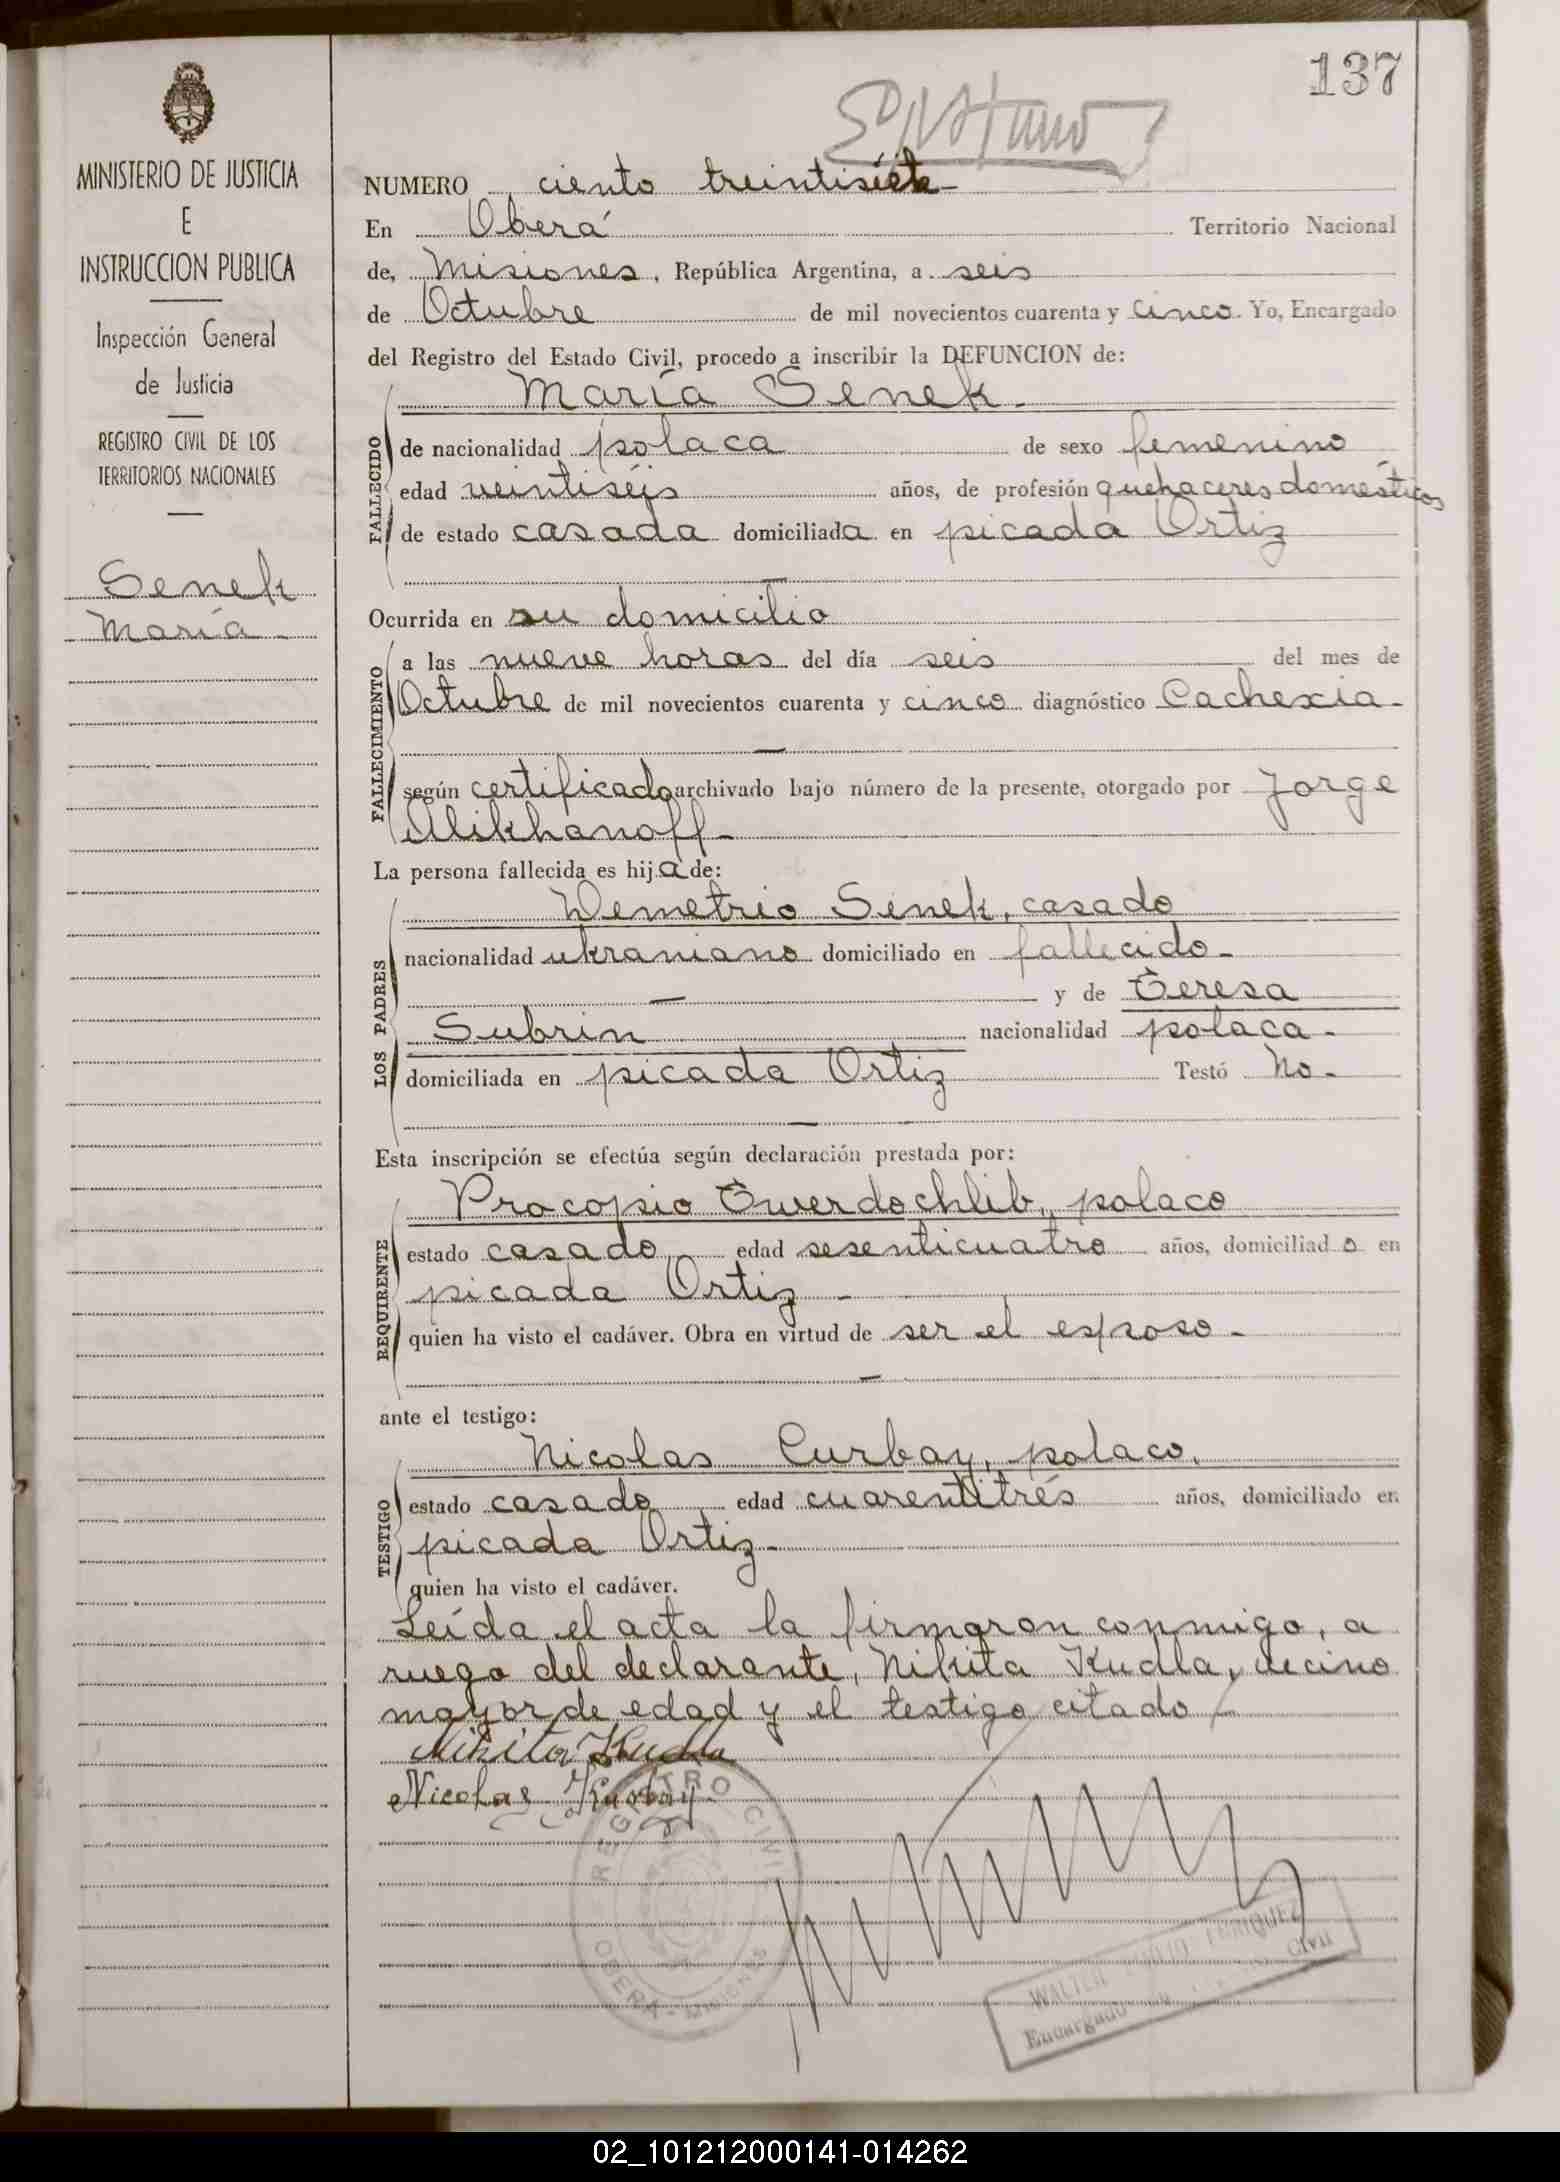 137
MINISTERIO DE JUSTICIA
E
INSTRUCCION PUBLICA
Inspección General
de Justicia
REGISTRO CIVIL DE LOS
TERRITORIOS NACIONALES
Senek
María
NUMERO ciento treintisiete
En Oberá Territorio Nacional
de, Misiones, República Argentina, a seis
de Octubre de mil novecientos cuarenta y cinco. Yo, Encargado
del Registro del Estado Civil, procedo a inscribir la DEFUNCION de:
María Senek.
FALLECIDO
de nacionalidad polaca de sexo femenino
edad veintiséis años, de profesión quehaceres domésticos
de estado casada domiciliada en picada Ortiz
Ocurrida en su domicilio
FALLECIMIENTO
a las nueve horas del día seis del mes de
Octubre de mil novecientos cuarenta y cinco diagnóstico Cachexia.
según certificado archivado bajo número de la presente, otorgado por Jorge
Alikhanoff
La persona fallecida es hija de:
LOS PADRES
Demetrio Senek, casado
nacionalidad ukraniano domiciliado en fallecido
y de Teresa
Subrin nacionalidad polaca
domiciliada en picada Ortiz Testó No.
Esta inscripción se efectúa según declaración prestada por:
REQUIRENTE
Procopio Twerdochlib, polaco
estado casado edad sesenticuatro años, domiciliado en
picada Ortiz
quien ha visto el cadáver. Obra en virtud de ser el esposo
ante el testigo:
TESTIGO
Nicolas Curbay, polaco,
estado casado edad cuarentitrés años, domiciliado en
picada Ortiz
quien ha visto el cadáver.
Leída el acta la firmaron conmigo, a
ruego del declarante, Nikita Kudla, vecino
mayor de edad y el testigo citado
Nikita Kudla
Nicolas Kurbay
REGISTRO CIVIL
OBERA - MISIONES
WALTER ENRIQUEZ
Encargado Civil
02_101212000141-014262